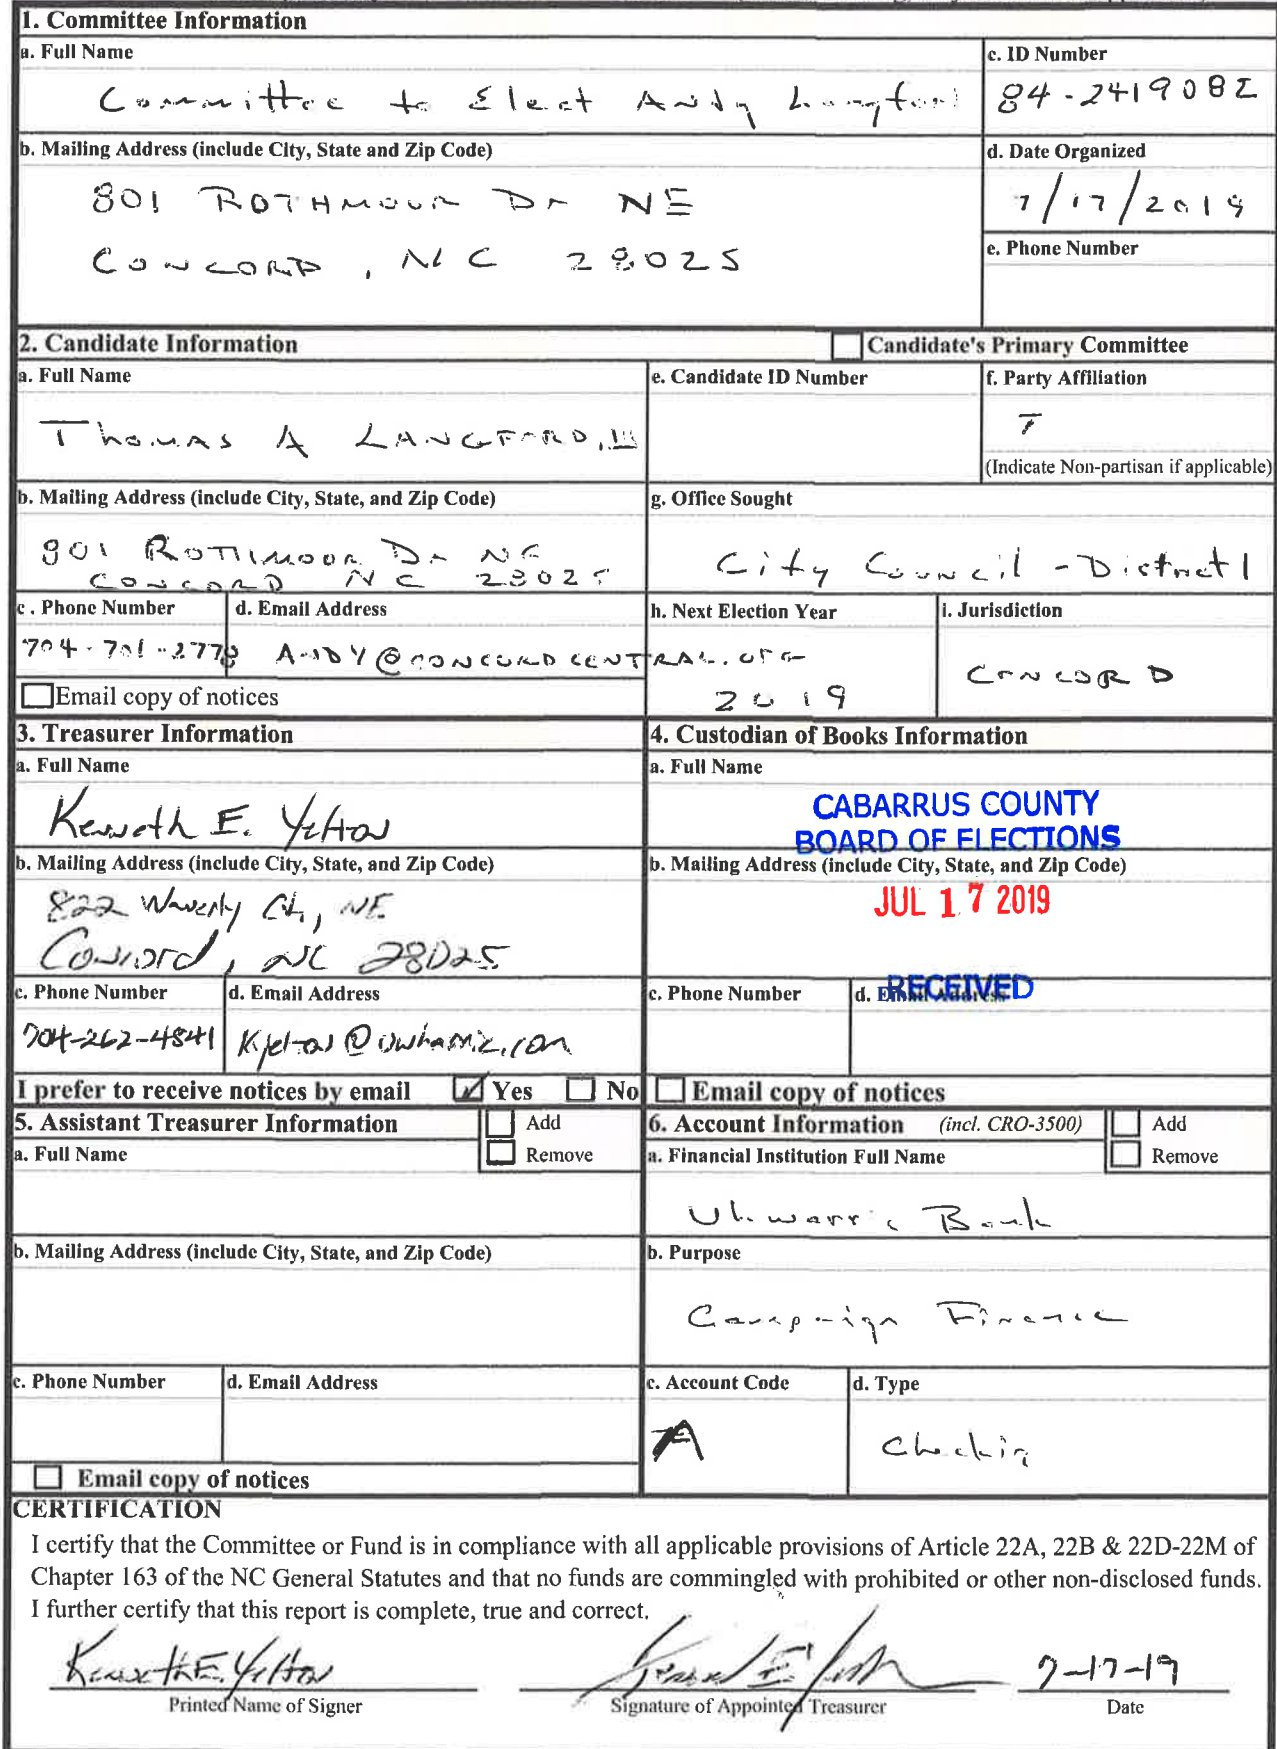 1. Committee Information
a. Full Name
Committee to Elect Andy Langford
c. ID Number
84-2419082
b. Mailing Address (include City, State and Zip Code)
801 ROTHMOOR Dr NE
CONCORD, NC 28025
d. Date Organized
7/17/2019
e. Phone Number
2. Candidate Information
Candidate's Primary Committee
a. Full Name
Thomas A LANGFORD, III
e. Candidate ID Number
f. Party Affiliation
(Indicate Non-partisan if applicable)
b. Mailing Address (include City, State, and Zip Code)
801 ROTHMOOR Dr NE
CONCORD NC 28025
g. Office Sought
City Council - District 1
c. Phone Number
704-701-2778
d. Email Address
ANDY@CONCORDCENTRAL.ORG
Email copy of notices
h. Next Election Year
2019
i. Jurisdiction
CONCORD
3. Treasurer Information
a. Full Name
Kenneth E. Yelton
b. Mailing Address (include City, State, and Zip Code)
822 Waverly Ct, NE
Concord, NC 28025
c. Phone Number
704-262-4841
d. Email Address
I prefer to receive notices by email Yes No
4. Custodian of Books Information
a. Full Name
CABARRUS COUNTY
BOARD OF ELECTIONS
b. Mailing Address (include City, State, and Zip Code)
JUL 17 2019
RECEIVED
c. Phone Number
d. Email Address
Email copy of notices
5. Assistant Treasurer Information
Add
Remove
a. Full Name
b. Mailing Address (include City, State, and Zip Code)
c. Phone Number
d. Email Address
Email copy of notices
6. Account Information (incl. CRO-3500)
Add
Remove
a. Financial Institution Full Name
Uwharrie Bank
b. Purpose
Campaign Finance
c. Account Code
A
d. Type
Checking
CERTIFICATION
I certify that the Committee or Fund is in compliance with all applicable provisions of Article 22A, 22B & 22D-22M of
Chapter 163 of the NC General Statutes and that no funds are commingled with prohibited or other non-disclosed funds.
I further certify that this report is complete, true and correct.
Kenneth E. Yelton
7-17-19
Printed Name of Signer
Signature of Appointed Treasurer
Date